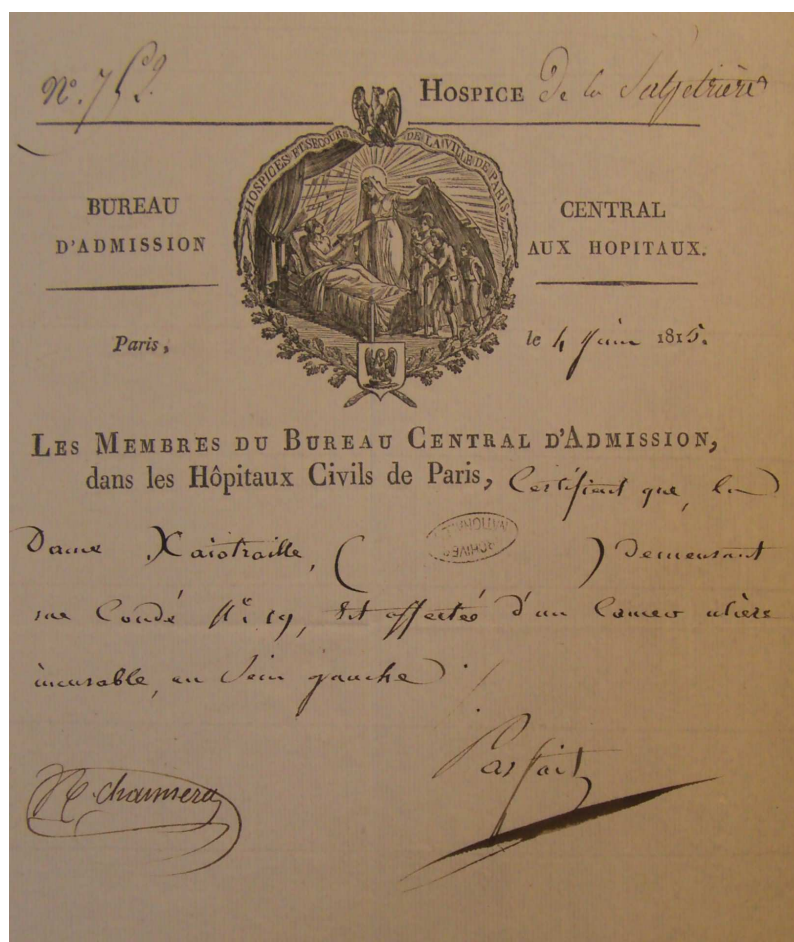 N.º 752.
HOSPICE De la Salpetrière
HOSPICES ET SECOURS DE LA VILLE DE PARIS
BUREAU CENTRAL
D'ADMISSION AUX HOPITAUX.
Paris, le 4 Juin 1815.
LES MEMBRES DU BUREAU CENTRAL D'ADMISSION,
dans les Hôpitaux Civils de Paris, Certifient que, la
Dame Xaintraille, ( ) demeurant
ARCHIVES NATIONALES
rue Condé N.º 19, Est affectée d'un Cancer ulcéré
incurable, au Sein gauche.
Parfait